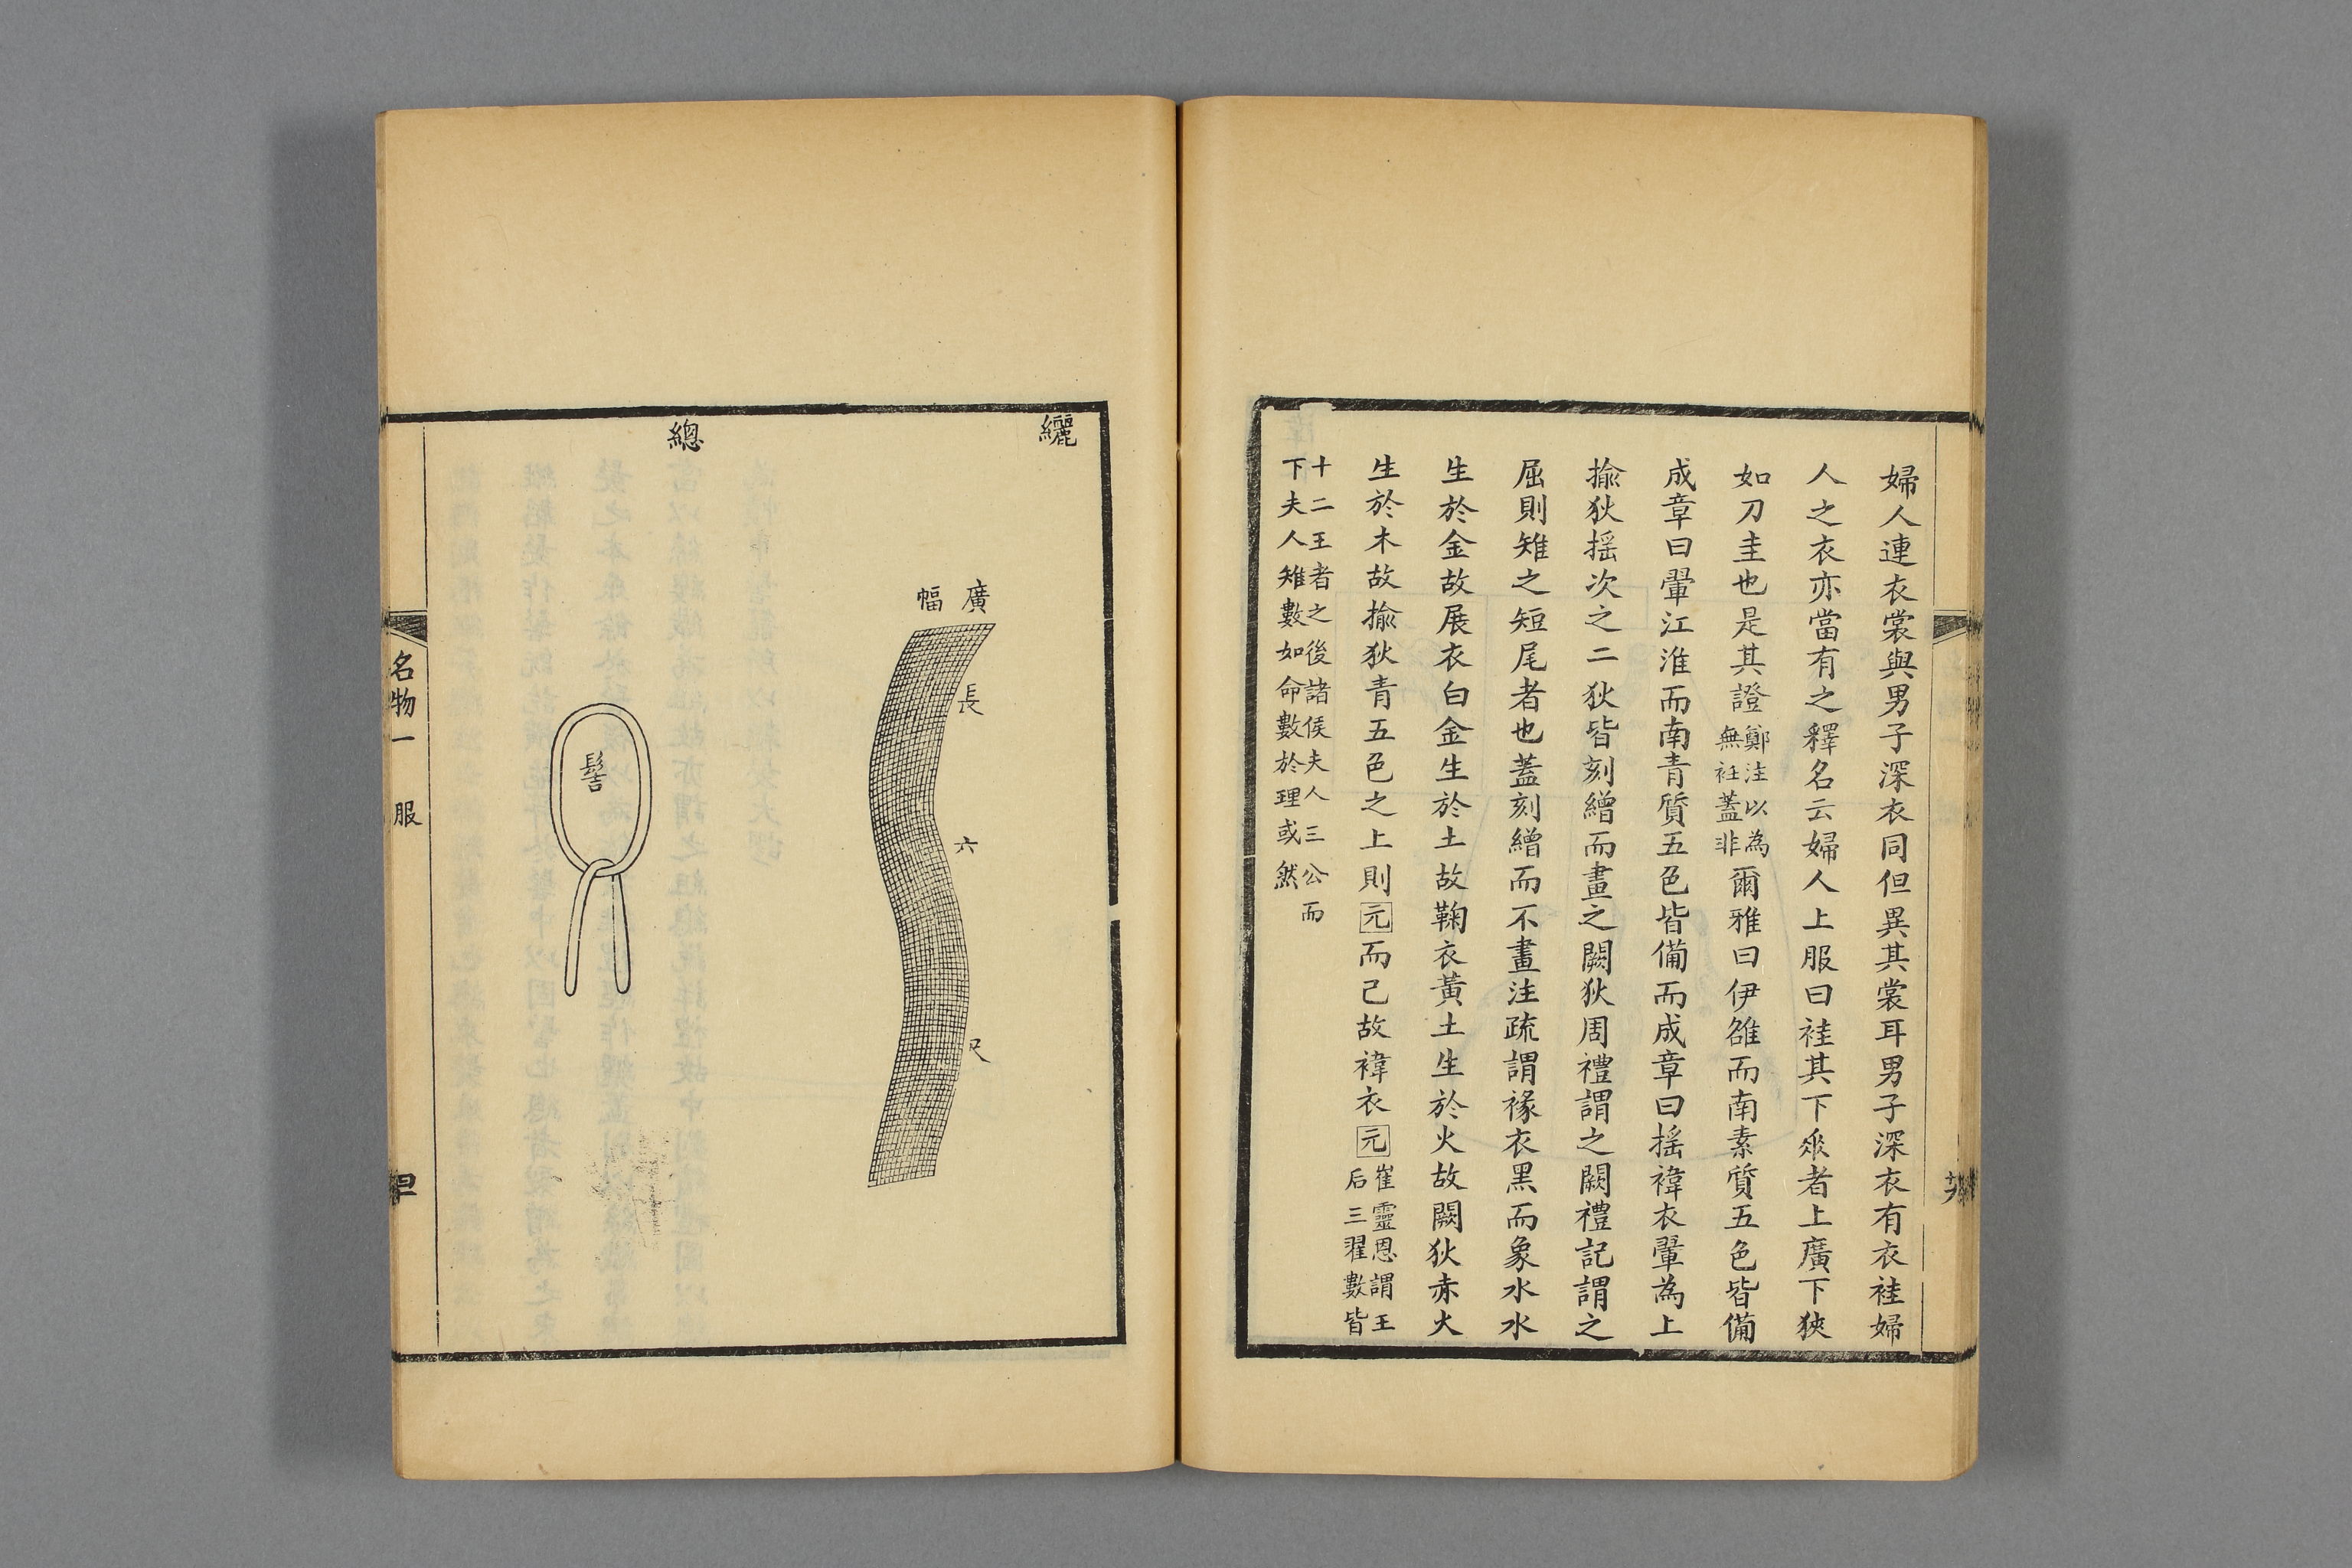 婦人連衣裳與男子深衣同但異其裳耳男子深衣有衣袿婦
人之衣亦當有之釋名云婦人上服曰袿其下𠂹者上廣下狹
如刀圭也是其證鄭注以為無衽蓋非爾雅曰伊雒而南素質五色皆備
成章曰翬江淮而南青質五色皆備而成章曰搖褘衣翬為上
揄狄揺次之二狄皆刻繒而畫之闕狄周禮謂之闕禮記謂之
屈則雉之短尾者也蓋刻繒而不畫注疏謂褖衣黑而象水水
生於金故展衣白金生於土故鞠衣黃土生於火故闕狄赤火
生於木故揄狄青五色之上則元而已故褘衣元崔靈恩謂王后三翟數皆
十二王者之後諸侯夫人三公而下夫人雉數如命數於理或然
纚
廣
幅
長
六
尺
總
髻
名物一 服